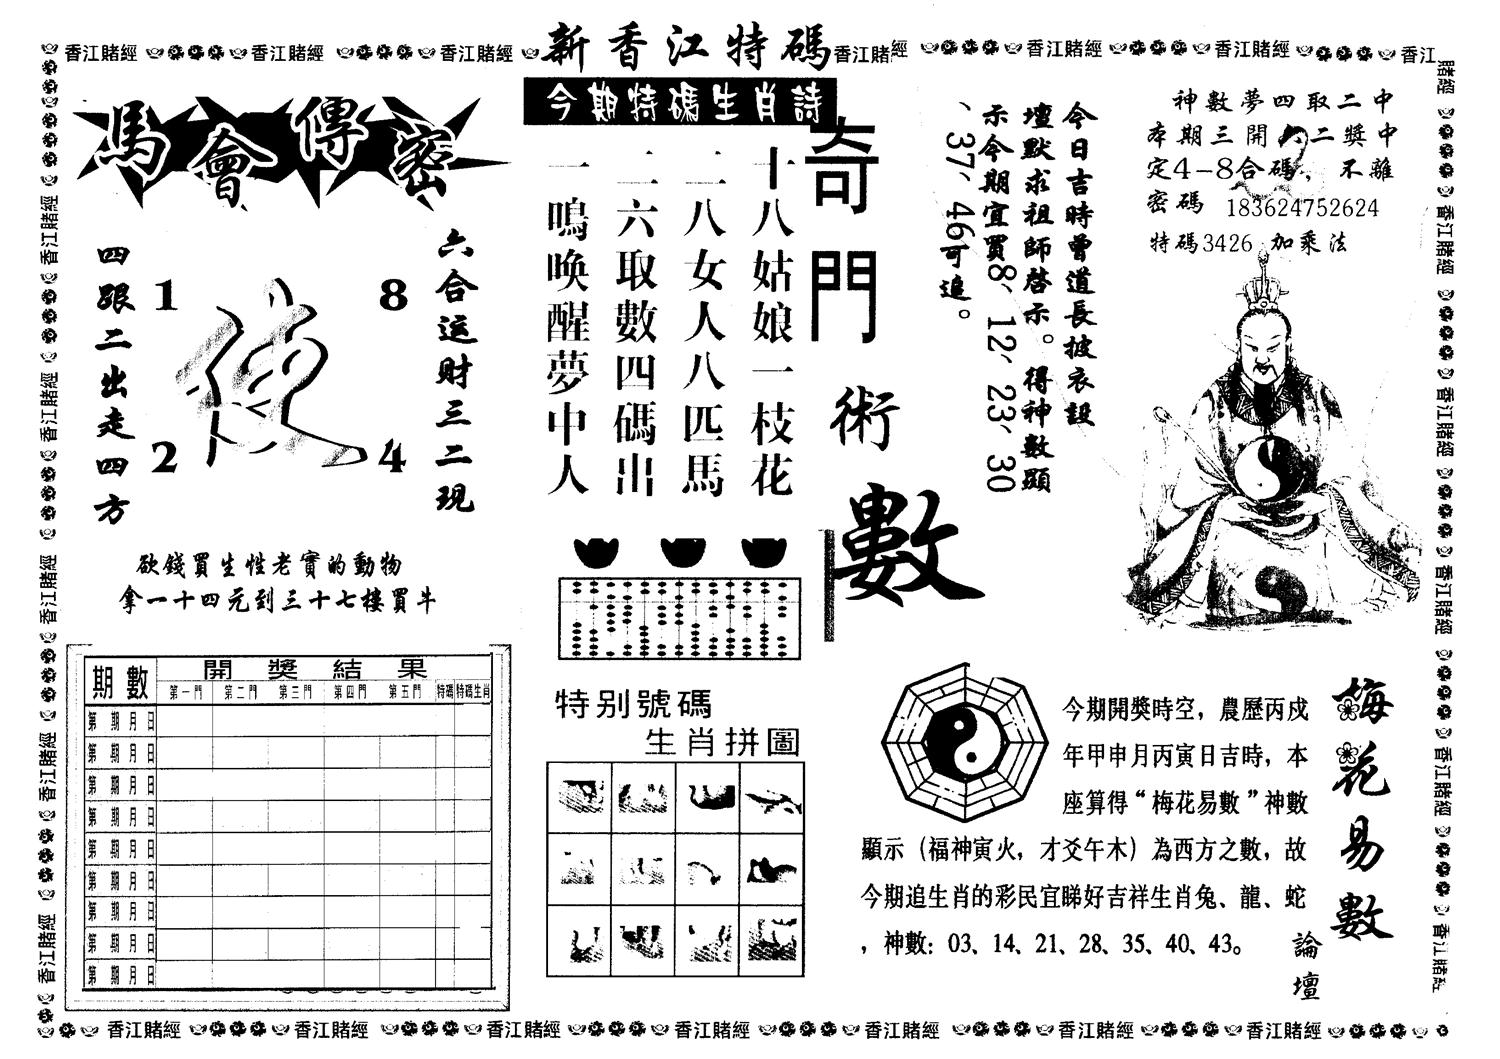 新香江特碼
香江賭經 香江賭經 香江賭經 香江賭經 香江賭經 香江賭經 香江
馬會傳密
六合运财三二現
四跟二出走四方
1 8
2 4
砍錢買生性老實的動物
拿一十四元到三十七樓買牛
期數 開獎結果
第一門 第二門 第三門 第四門 第五門 特碼 特碼生肖
第 期 月 日
第 期 月 日
第 期 月 日
第 期 月 日
第 期 月 日
第 期 月 日
第 期 月 日
第 期 月 日
第 期 月 日
今期特碼生肖詩
十八姑娘一枝花
二八女人八匹馬
二六取數四碼出
一鳴喚醒夢中人
特别號碼
生肖拼圖
奇門術數
今日吉時曾道長披衣設
壇默求祖師啓示。得神數顯
示今期宜買8、12、23、30
、37、46可追。
神數夢四取二中
本期三開六二獎中
定4-8合碼，不離
密碼 183624752624
特碼3426 加乘法
梅花易數
論壇
今期開獎時空，農歷丙戍
年甲申月丙寅日吉時，本
座算得“梅花易數”神數
顯示（福神寅火，才爻午木）為西方之數，故
今期追生肖的彩民宜睇好吉祥生肖兔、龍、蛇
，神數：03、14、21、28、35、40、43。
香江賭經 香江賭經 香江賭經 香江賭經 香江賭經 香江賭經 香江賭經